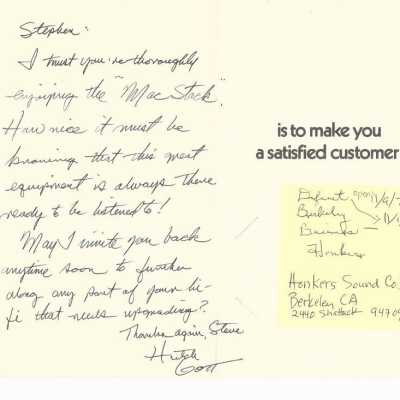 Stephen:
I trust you're thoroughly
enjoying the "Mac Stack".
How nice it must be
knowing that this great
equipment is always there
ready to be listened to!
May I invite you back
anytime soon to further
along any part of your hi-
fi that needs upgrading?
Thanks again, Steve
is to make you
a satisfied customer
Berkeley
Business —
Honkers
Honkers Sound Co.
Berkeley CA
2440 Shattuck